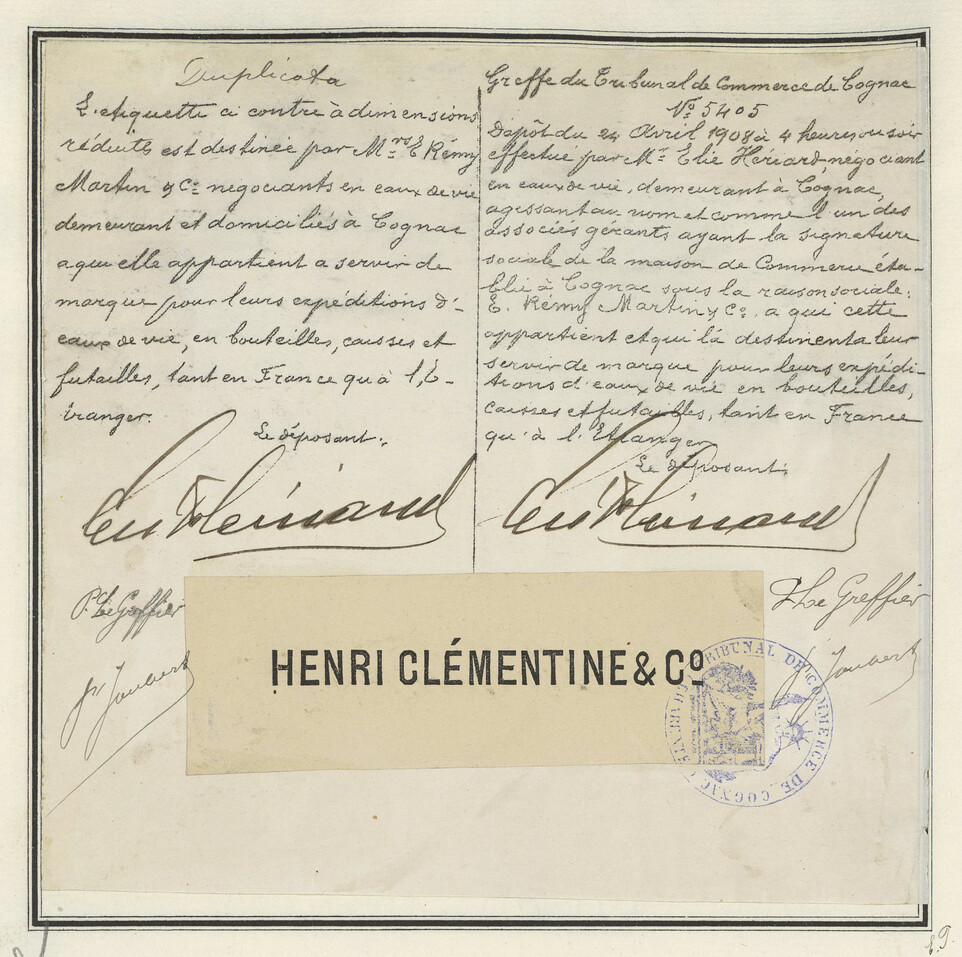 Duplicata
L'étiquette ci contre à dimensions
réduits est destinée par Mrs E Rémy
Martin & Cie négociants en eaux de vie
demeurant et domiciliés à Cognac
a qui elle appartient a servir de
marque pour leurs expéditions d'-
eaux de vie, en bouteilles, caisses et
futailles, tant en France qu'à l'E-
tranger.
Le déposant.
Greffe du Tribunal de Commerce de Cognac
No 5405
Dépôt du 24 Avril 1908 à 4 heures du soir
effectué par Mr Elie Hériard, négociant
en eaux de vie, demeurant à Cognac,
agissant au nom et comme l'un des
associés gérants ayant la signature
sociale de la maison de Commerce éta-
blie à Cognac sous la raison sociale:
E. Rémy Martin & Co, a qui cette
appartient et qui la destinent a leur
servir de marque pour leurs expédi-
tions d'eaux de vie en bouteilles,
caisses et futailles, tant en France
qu'à l'Etranger
Le déposant.
Hériard
Hériard
Le Greffier
Joubert
Le Greffier
Joubert
HENRI CLÉMENTINE & Co
TRIBUNAL DE COMMERCE DE COGNAC